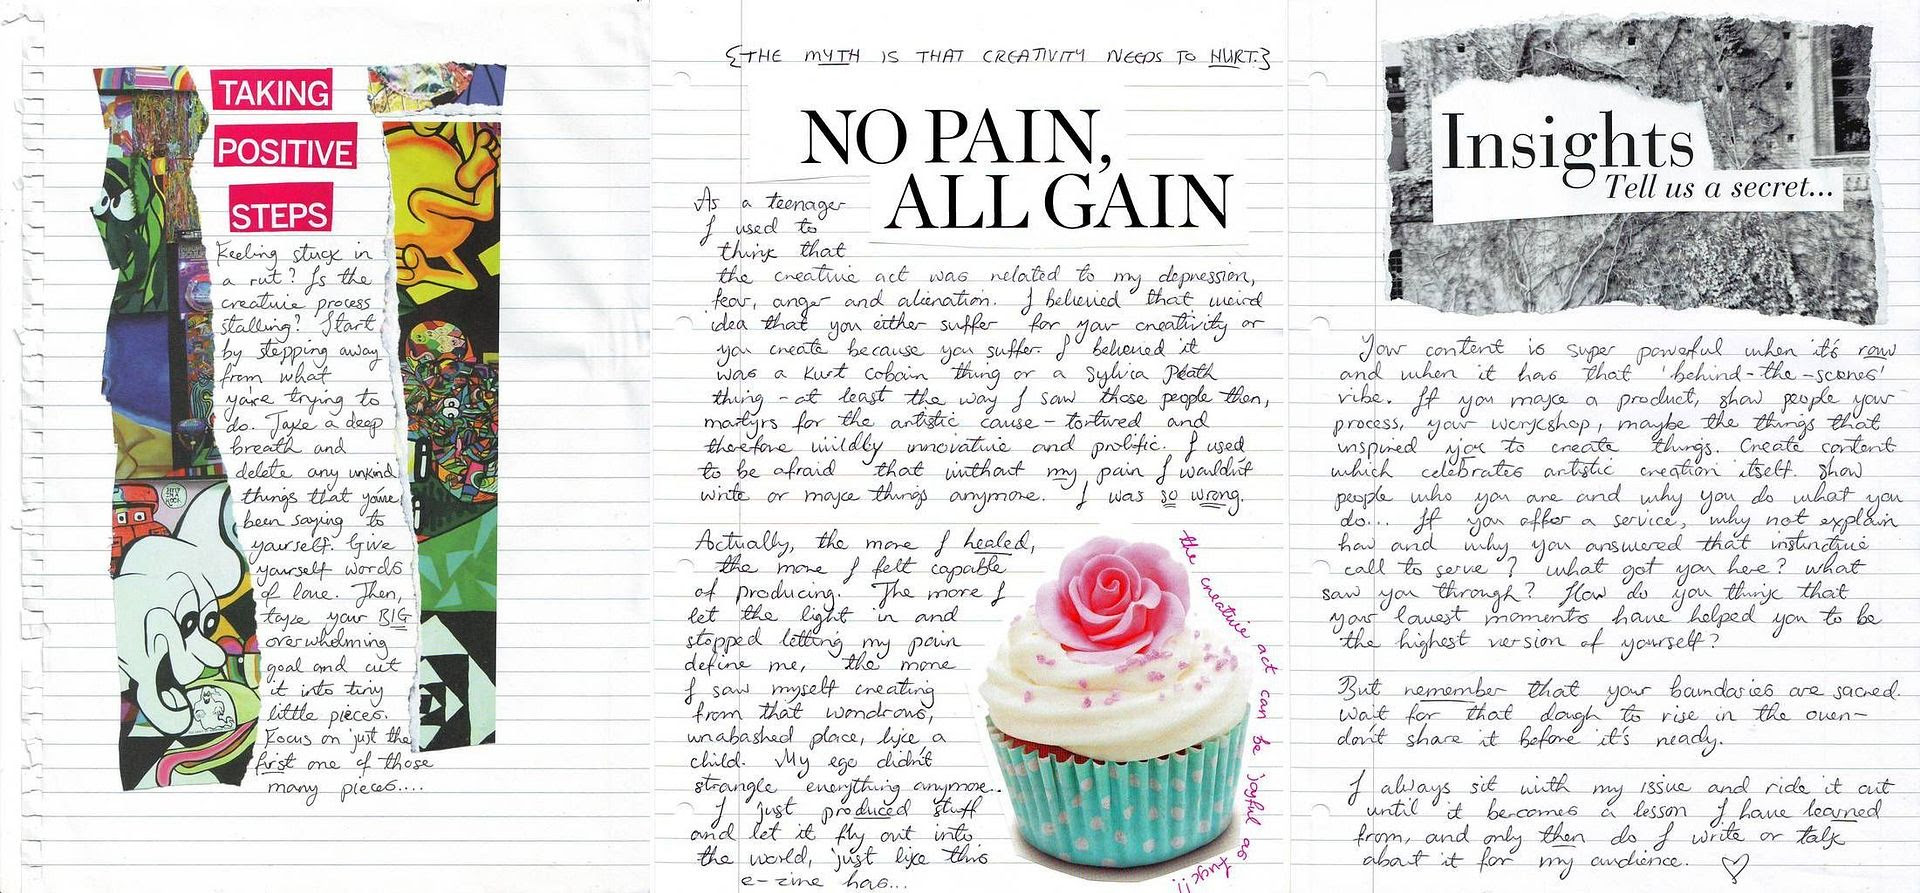 TAKING
POSITIVE
STEPS
Feeling stuck in
a rut? Is the
creative process
stalling? Start
by stepping away
from what
you're trying to
do. Take a deep
breath and
delete any unkind
things that you've
been saying to
yourself. Give
yourself words
of love. Then,
take your BIG
overwhelming
goal and cut
it into tiny
little pieces.
Focus on just the
first one of those
many pieces....
{THE MYTH IS THAT CREATIVITY NEEDS TO HURT.}
NO PAIN,
ALL GAIN
As a teenager
I used to
think that
the creative act was related to my depression,
fear, anger and alienation. I believed that weird
idea that you either suffer for your creativity or
you create because you suffer. I believed it
was a Kurt Cobain thing or a Sylvia Plath
thing - at least the way I saw those people then,
martyrs for the artistic cause - tortured and
therefore wildly innovative and prolific. I used
to be afraid that without my pain I wouldn't
write or make things anymore. I was so wrong.
Actually, the more I healed,
the more I felt capable
of producing. The more I
let the light in and
stopped letting my pain
define me, the more
I saw myself creating
from that wondrous,
unabashed place, like a
child. My ego didn't
strangle everything anymore..
I just produced stuff
and let it fly out into
the world, just like this
e-zine has...
the creative act can be joyful as fuck!!
Insights
Tell us a secret...
Your content is super powerful when it's raw
and when it has that 'behind-the-scenes'
vibe. If you make a product, show people your
process, your workshop, maybe the things that
inspired you to create things. Create content
which celebrates artistic creation itself. Show
people who you are and why you do what you
do... If you offer a service, why not explain
how and why you answered that instinctive
call to serve? What got you here? What
saw you through? How do you think that
your lowest moments have helped you to be
the highest version of yourself?
But remember that your boundaries are sacred.
Wait for that dough to rise in the oven-
don't share it before it's ready.
I always sit with my issue and ride it out
until it becomes a lesson I have learned
from, and only then do I write or talk
about it for my audience.